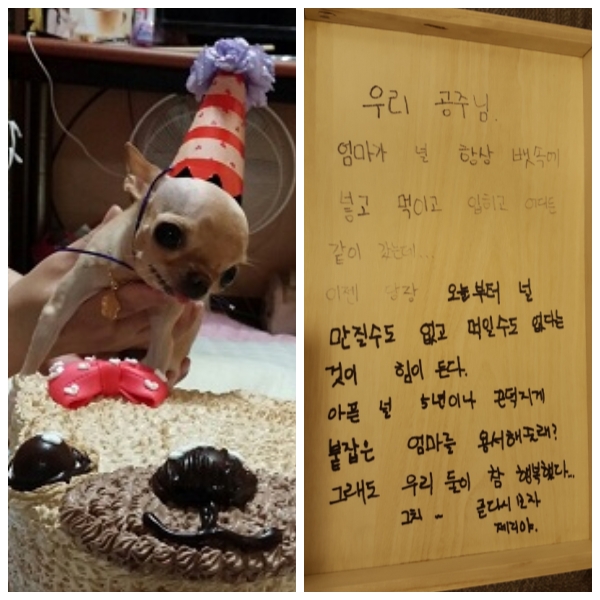 우리 공주님.
엄마가 널 항상 뱃속에
넣고 먹이고 입히고 어디든
같이 갔는데...
이젠 당장 오늘부터 널
만질수도 없고 먹일수도 없다는
것이 힘이 든다.
아픈 널 5년이나 끈덕지게
붙잡은 엄마를 용서해주래?
그래도 우리 둘이 참 행복했다...
그치 ... 곧다시 보자
제리야.